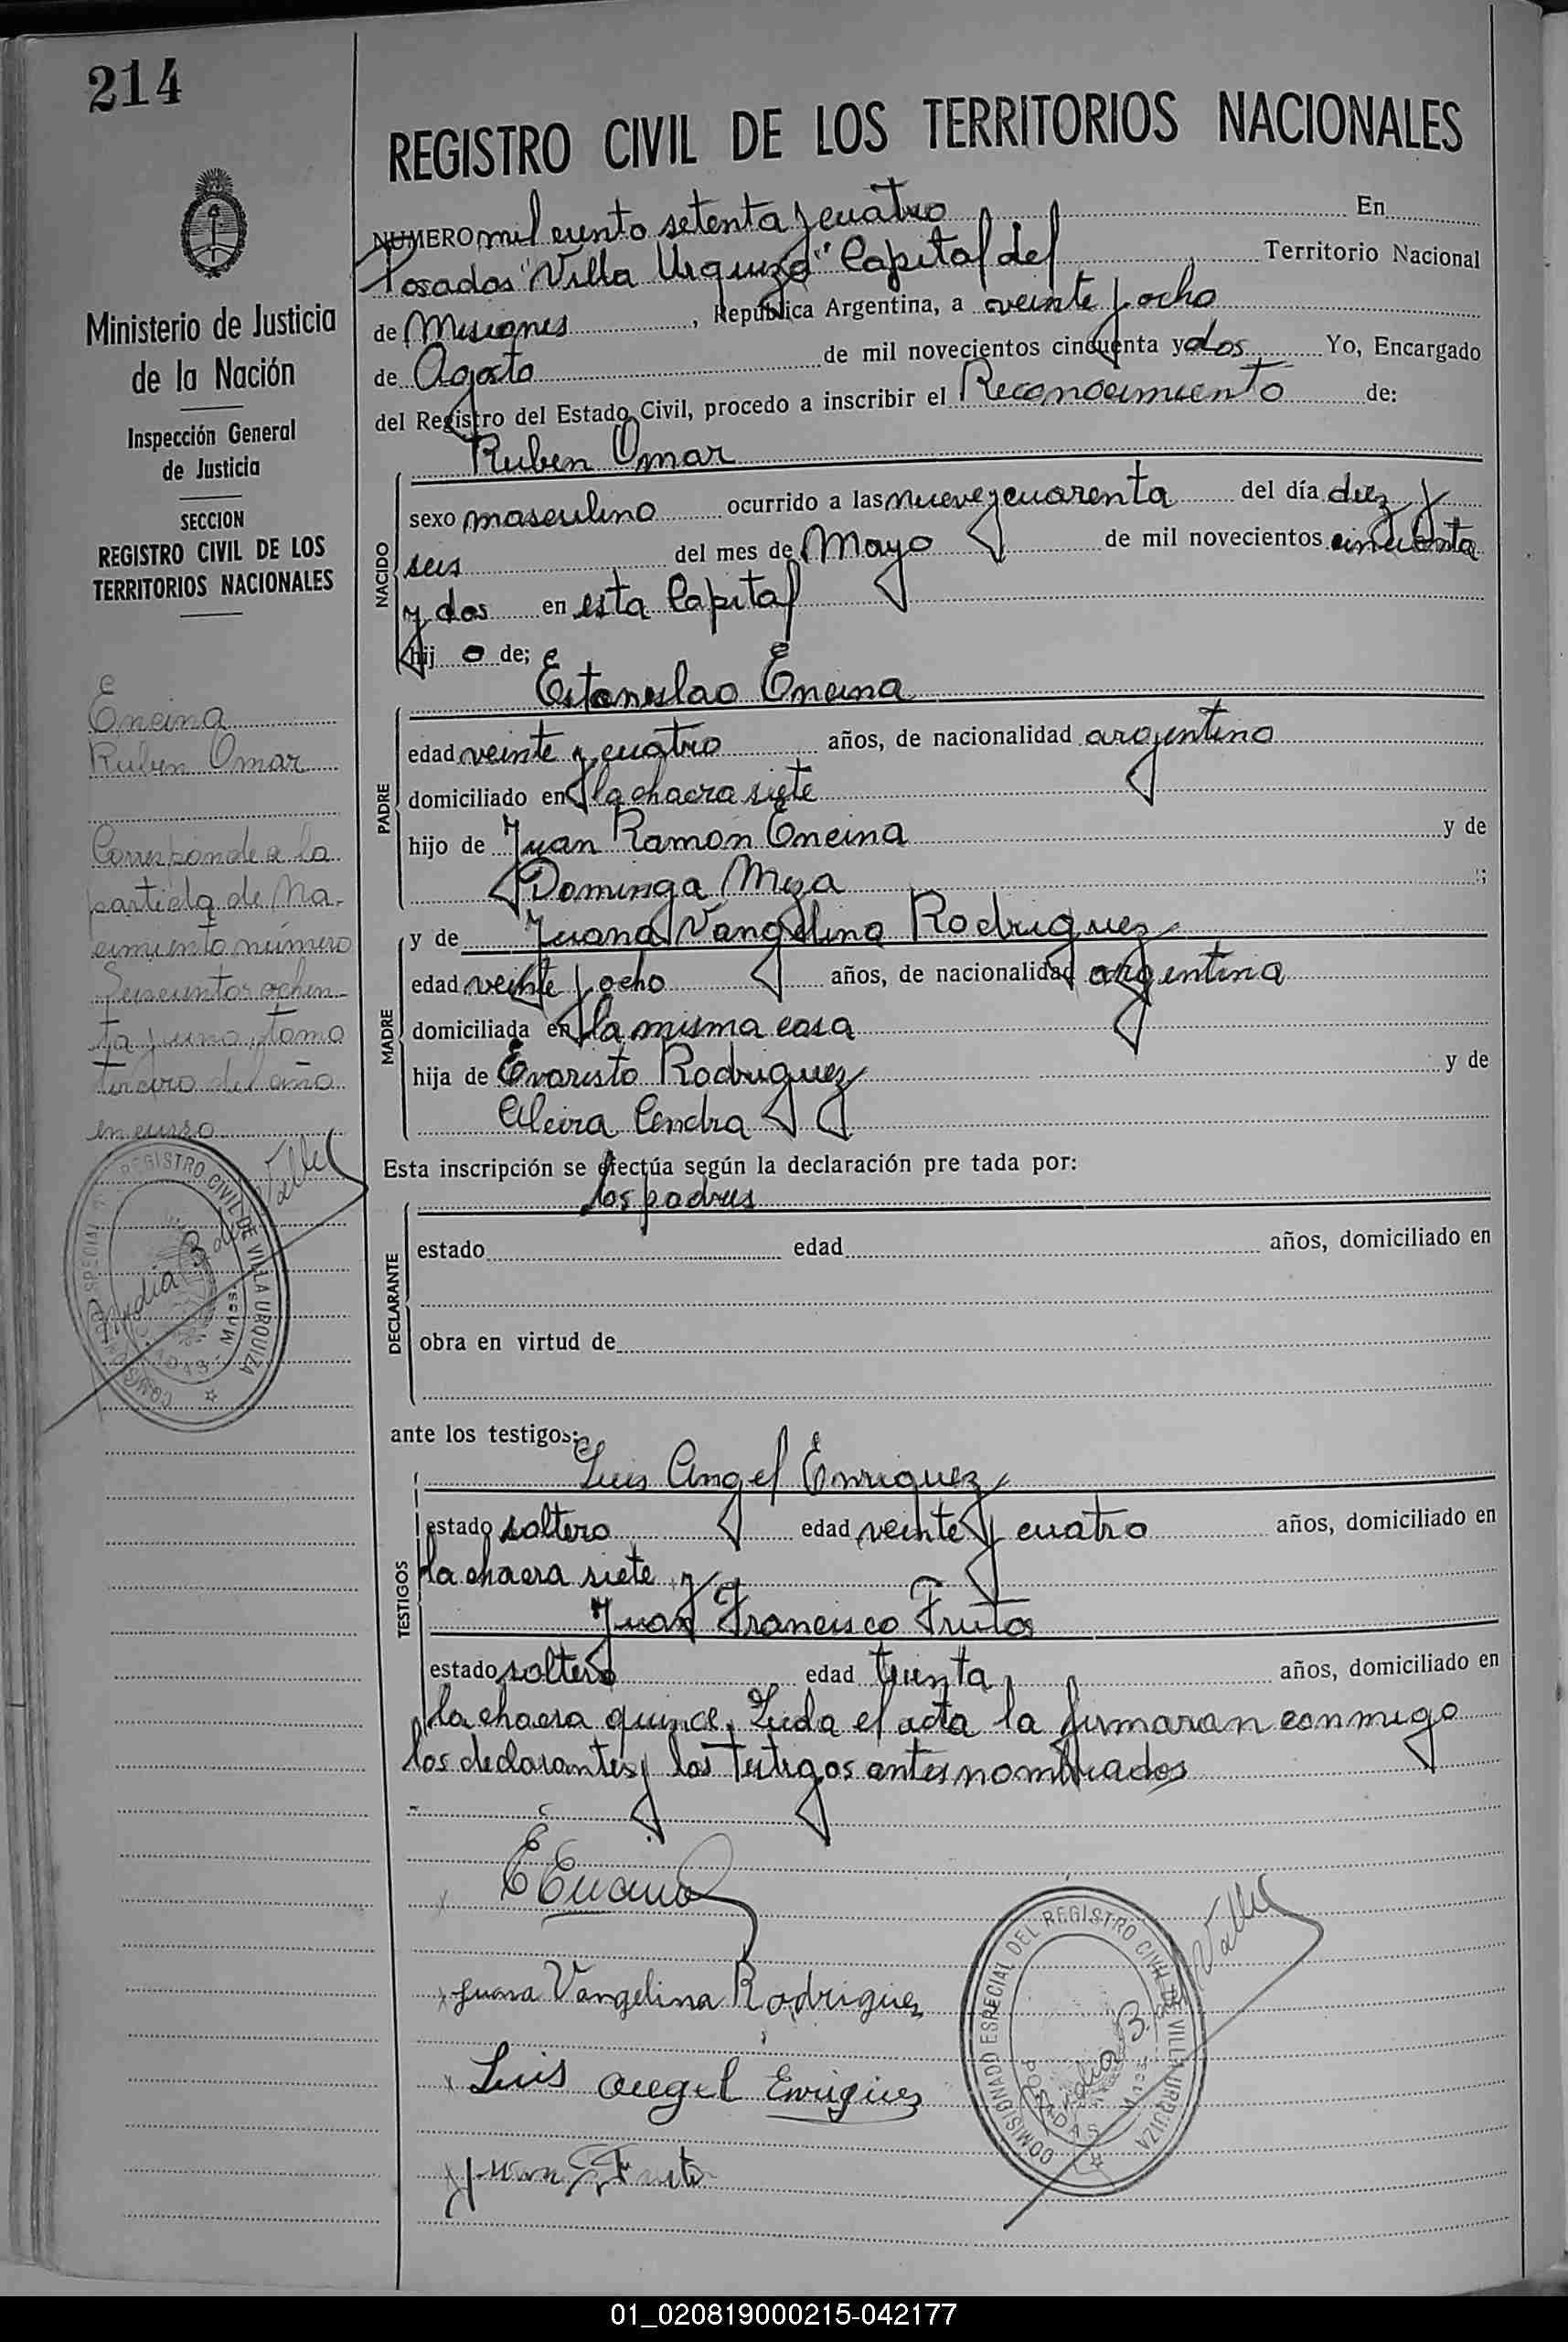 214
REGISTRO CIVIL DE LOS TERRITORIOS NACIONALES
NUMERO mil ciento setenta y cuatro En
Posadas "Villa Urquiza" Capital del Territorio Nacional
de Misiones, República Argentina, a veinte y ocho
de Agosto de mil novecientos cincuenta y dos Yo, Encargado
del Registro del Estado Civil, procedo a inscribir el Reconocimiento de:
Ruben Omar
NACIDO
sexo masculino ocurrido a las nueve y cuarenta del día diez y
seis del mes de Mayo de mil novecientos cincuenta
y dos en esta Capital
hij o de;
Estanislao Encina
PADRE
edad veinte y cuatro años, de nacionalidad argentino
domiciliado en la chacra siete
hijo de Juan Ramon Encina y de
Dominga Meza ;
MADRE
y de Juana Vangelina Rodriguez
edad veinte y ocho años, de nacionalidad argentina
domiciliada en la misma casa
hija de Evaristo Rodriguez y de
Alcira Cendra
Esta inscripción se efectúa según la declaración pre tada por:
los padres
DECLARANTE
estado edad años, domiciliado en
obra en virtud de
ante los testigos:
Luis Angel Enriquez
TESTIGOS
estado soltero edad veinte y cuatro años, domiciliado en
la chacra siete y
Juan Francisco Frutos
estado soltero edad treinta años, domiciliado en
la chacra quince. Leida el acta la firmaran conmigo
los declarantes y los testigos antes nombrados
E Encina
Juana Vangelina Rodriguez
Luis Angel Enriquez
Juan F Frutos
COMISIONADO ESPECIAL DEL REGISTRO CIVIL DE VILLA URQUIZA
POSADAS - Mnes.
Ministerio de Justicia
de la Nación
Inspección General
de Justicia
SECCION
REGISTRO CIVIL DE LOS
TERRITORIOS NACIONALES
Encina
Ruben Omar
Corresponde a la
partida de Na-
cimiento número
Seiscientos ochen-
ta y uno, tomo
tercero del año
en curso
COMISIONADO ESPECIAL DEL REGISTRO CIVIL DE VILLA URQUIZA
POSADAS - Mnes.
01_020819000215-042177